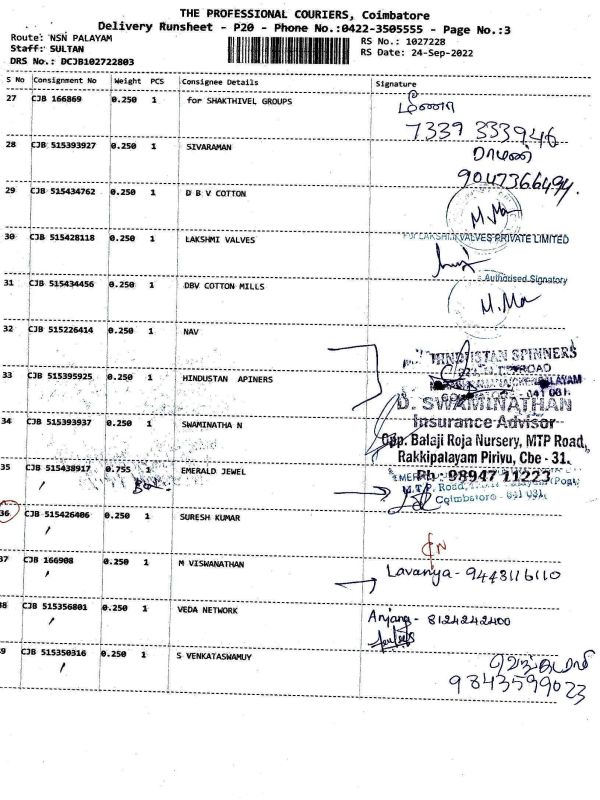 THE PROFESSIONAL COURIERS, Coimbatore
Delivery Runsheet - P20 - Phone No.:0422-3505555 - Page No.:3
Route: NSN PALAYAM
RS No.: 1027228
Staff: SULTAN
RS Date: 24-Sep-2022
DRS No.: DCJB102722803
S No Consignment No Weight PCS Consignee Details Signature
27 CJB 166869 0.250 1 for SHAKTHIVEL GROUPS மீனா
7339 333946
28 CJB 515393927 0.250 1 SIVARAMAN ராமன்
9047366494.
29 CJB 515434762 0.250 1 D B V COTTON M.Ma
30 CJB 515428118 0.250 1 LAKSHMI VALVES For LAKSHMI VALVES PRIVATE LIMITED
Authorised Signatory
31 CJB 515434456 0.250 1 DBV COTTON MILLS M.Ma
32 CJB 515226414 0.250 1 NAV
HINDUSTAN SPINNERS
33 CJB 515395925 0.250 1 HINDUSTAN APINERS
34 CJB 515393937 0.250 1 SWAMINATHA N D. SWAMINATHAN
Insurance Advisor
Opp. Balaji Roja Nursery, MTP Road,
Rakkipalayam Pirivu, Cbe - 31.
Ph: 98947 11227
35 CJB 515438917 0.755 1 EMERALD JEWEL
M.T.P. Road,
Coimbatore - 641 031
36 CJB 515426406 0.250 1 SURESH KUMAR
37 CJB 166908 0.250 1 M VISWANATHAN Lavanya - 9448116110
38 CJB 515356801 0.250 1 VEDA NETWORK Anjana - 8124242400
39 CJB 515350316 0.250 1 S VENKATASWAMUY
9843599023